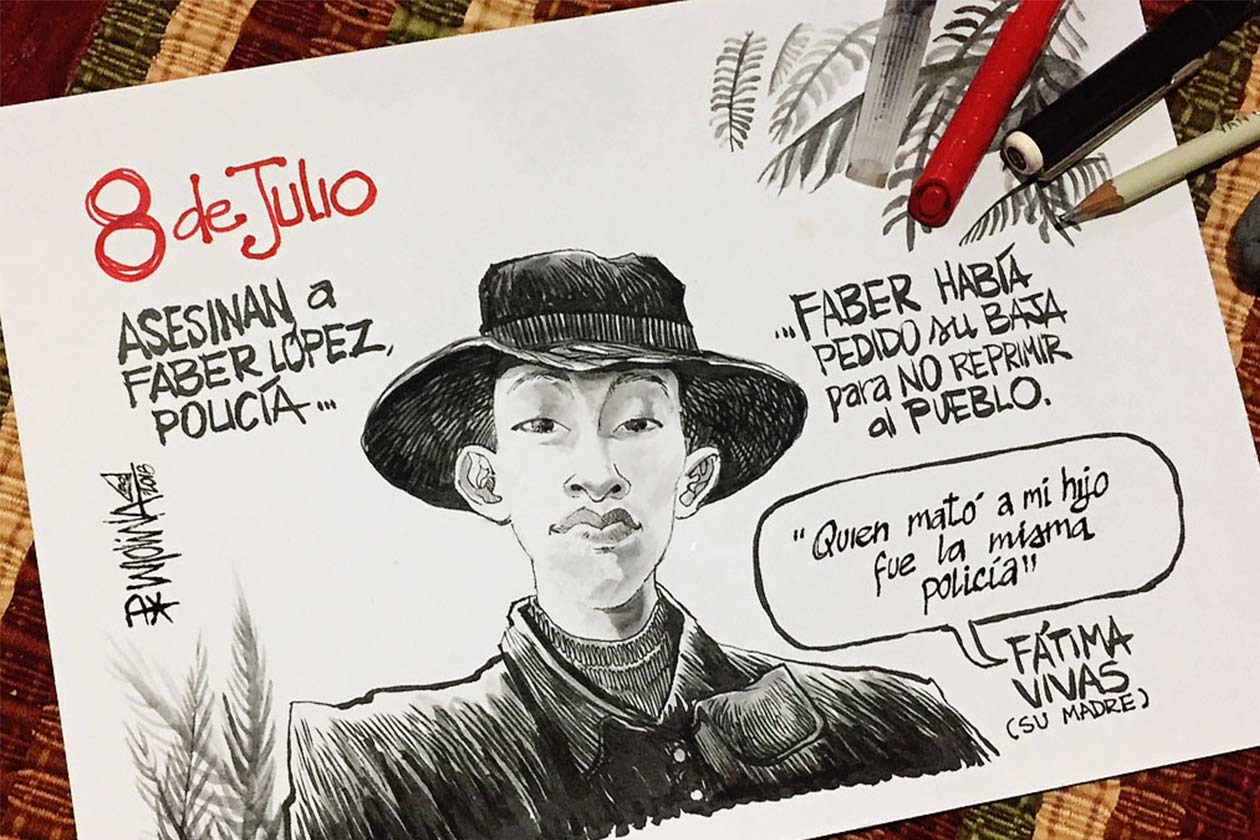 8 de Julio
ASESINAN a
FABER LÓPEZ,
POLICÍA...
...FABER HABÍA
PEDIDO su BAJA
para NO REPRIMIR
al PUEBLO.
"Quien mató a mi hijo
fue la misma
policía"
FÁTIMA
VIVAS
(SU MADRE)
2018